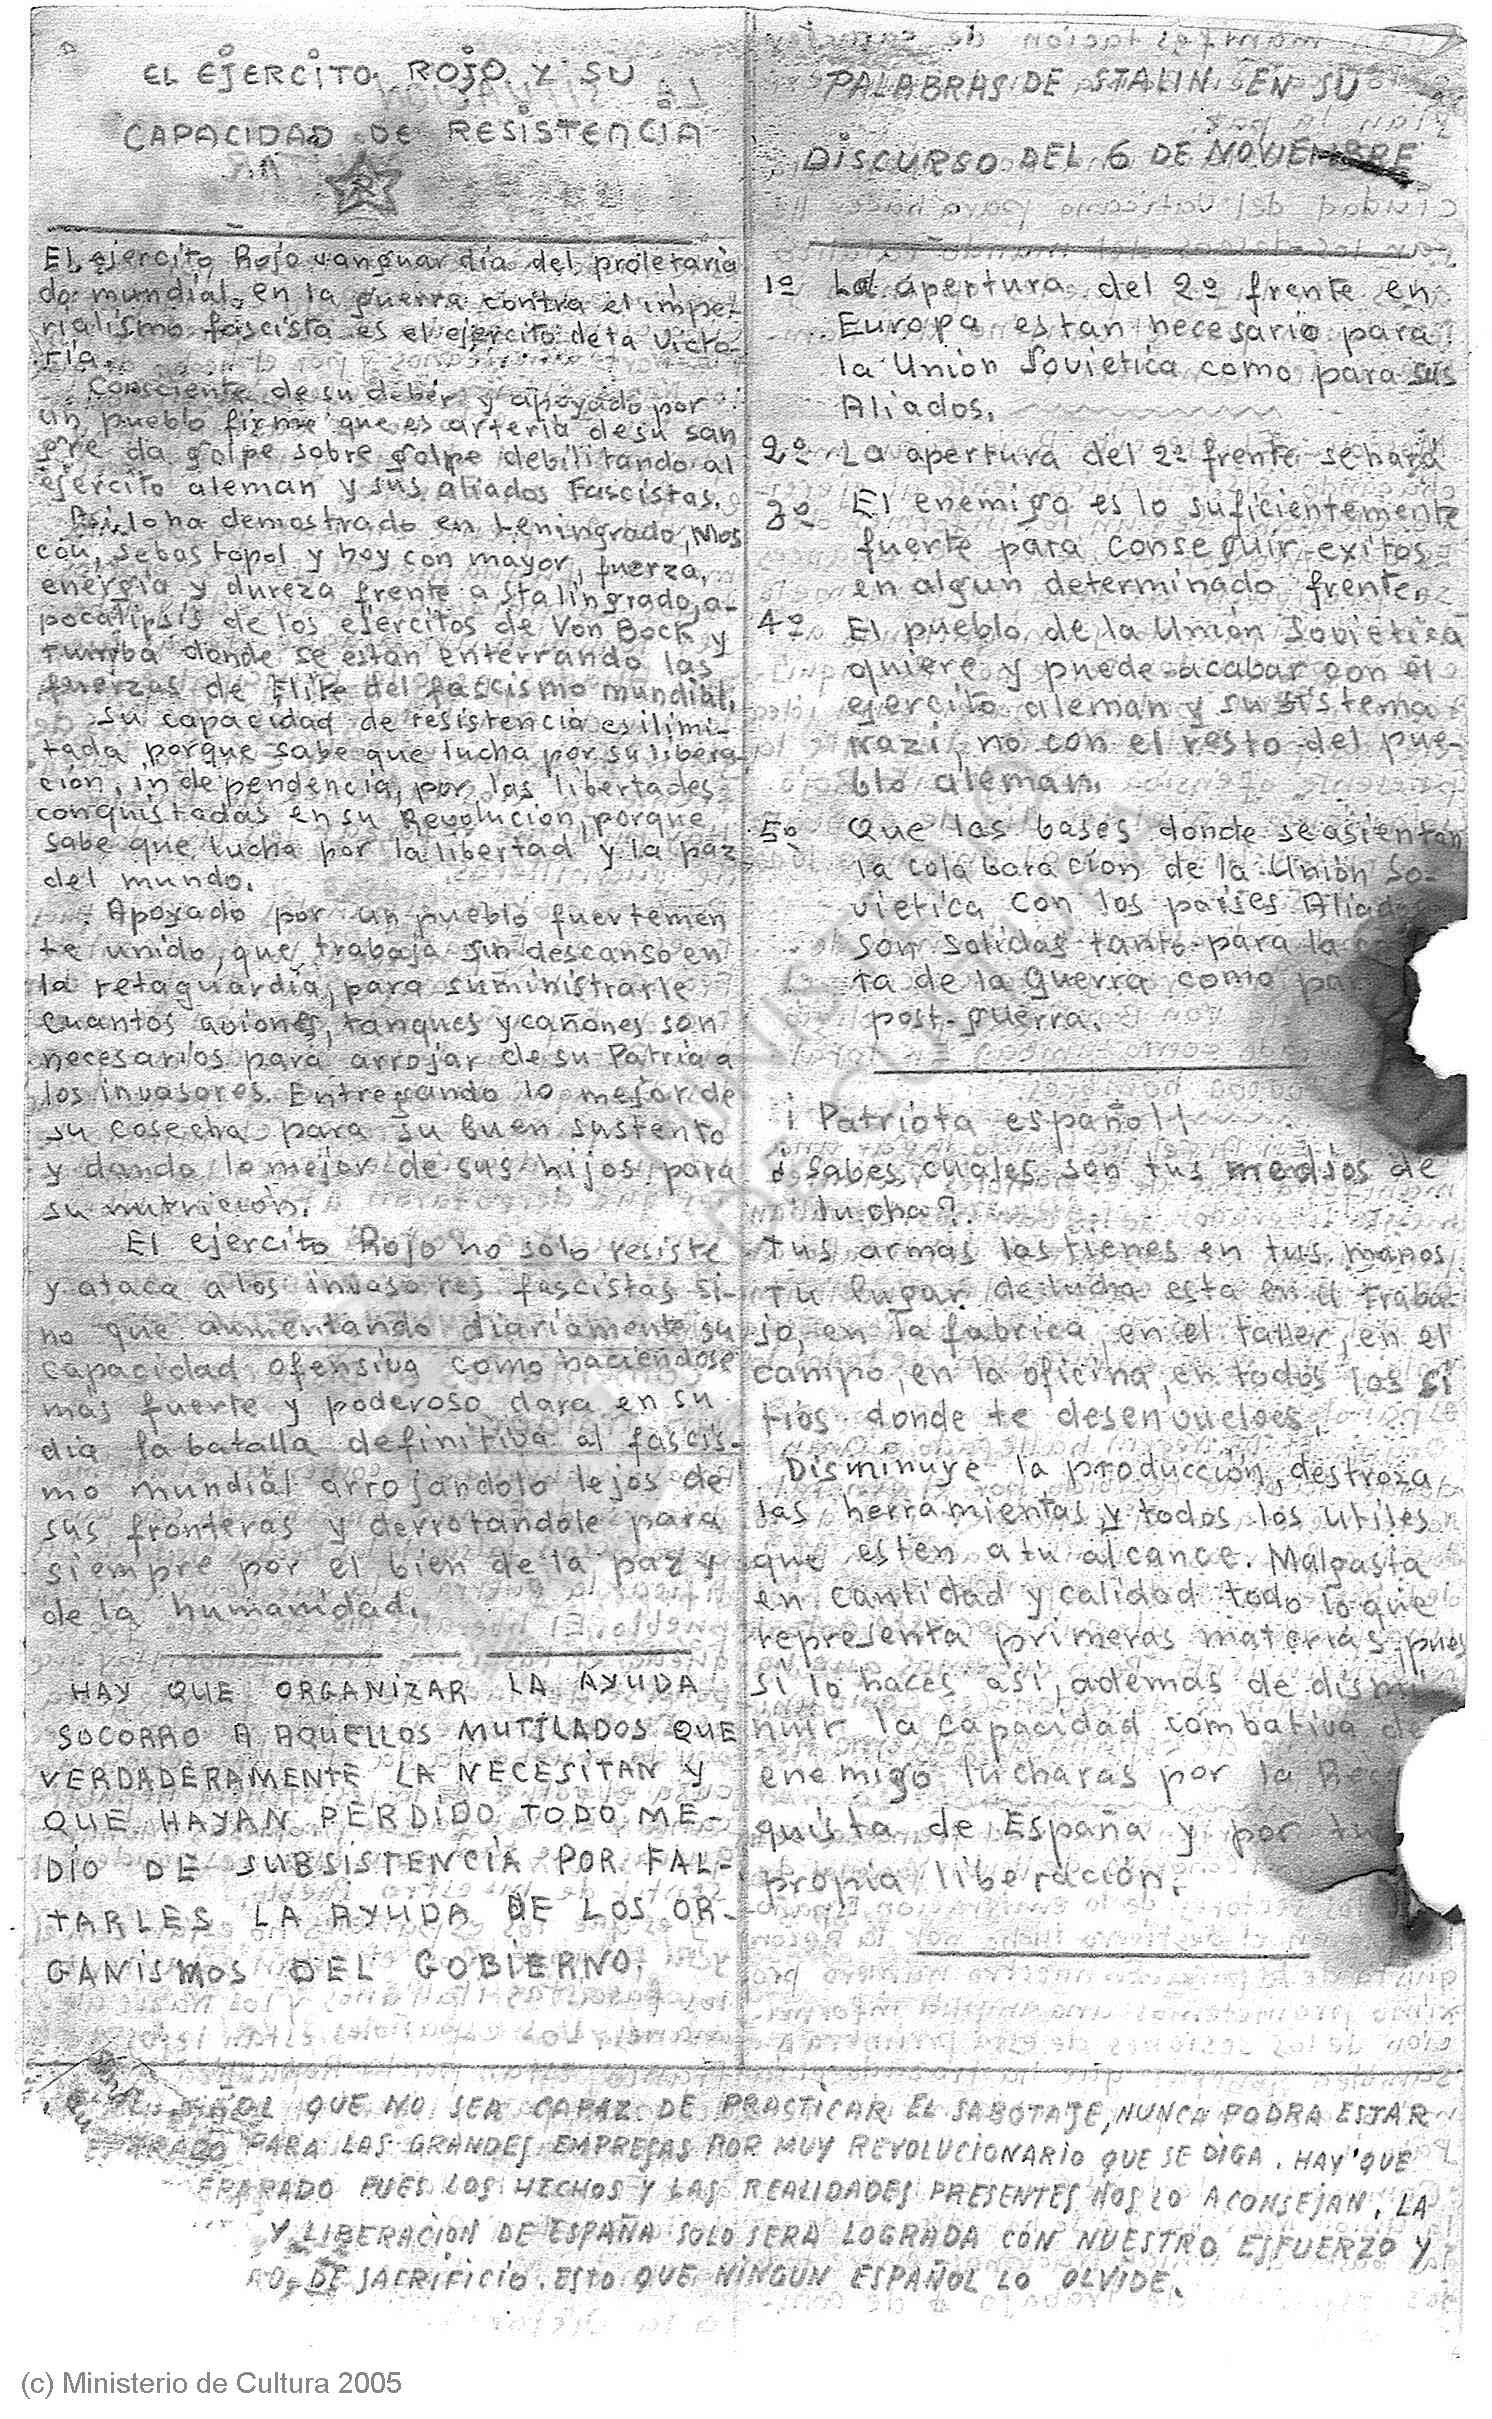 EL EJERCITO ROJO Y SU
CAPACIDAD DE RESISTENCIA
El ejercito Rojo vanguardia del proletaria
do mundial, en la guerra contra el impe-
rialismo fascista es el ejercito de la victo-
ria.
Consciente de su deber y apoyado por
un pueblo firme que es arteria de su san
gre da golpe sobre golpe debilitando al
ejercito aleman y sus aliados Fascistas.
Asi lo ha demostrado en Leningrado, Mos
cou, Sebastopol y hoy con mayor, fuerza,
energia y dureza frente a Stalingrado, a-
pocalipsis de los ejercitos de Von Bock y
tumba donde se estan enterrando las
fuerzas de Elite del fascismo mundial.
Su capacidad de resistencia es ilimi-
tada porque sabe que lucha por su libera-
cion, independencia, por las libertades
conquistadas en su Revolucion, porque
sabe que lucha por la libertad y la paz
del mundo.
Apoyado por un pueblo fuertemen
te unido, que trabaja sin descanso en
la retaguardia, para suministrarle
cuantos aviones, tanques y cañones son
necesarios para arrojar de su Patria a
los invasores. Entregando lo mejor de
su cosecha para su buen sustento
y dando lo mejor de sus hijos para
su nutricion.
El ejercito Rojo no solo resiste
y ataca a los invasores fascistas si-
no que aumentando diariamente su
capacidad ofensiva como haciendose
mas fuerte y poderoso dara en su
dia la batalla definitiva al fascis-
mo mundial arrojandolo lejos de
sus fronteras y derrotandole para
siempre por el bien de la paz y
de la humanidad.
HAY QUE ORGANIZAR LA AYUDA
SOCORRO A AQUELLOS MUTILADOS QUE
VERDADERAMENTE LA NECESITAN Y
QUE HAYAN PERDIDO TODO ME-
DIO DE SUBSISTENCIA POR FAL-
TARLES LA AYUDA DE LOS OR-
GANISMOS DEL GOBIERNO.
PALABRAS DE STALIN EN SU
DISCURSO DEL 6 DE NOVIEMBRE
1º La apertura del 2º frente en
Europa es tan necesario para
la Unión Sovietica como para sus
Aliados.
2º La apertura del 2º frente se hará
3º El enemigo es lo suficientemente
fuerte para conseguir exitos
en algun determinado frente.
4º El pueblo de la Unión Sovietica
quiere y puede acabar con el
ejercito aleman y su sistema
nazi, no con el resto del pue-
blo aleman.
5º Que las bases donde se asientan
la colaboracion de la Unión So-
vietica con los paises Aliad
son solidas tanto para la
ra de la Guerra como pa
post-guerra.
¡Patriota español!
¿Sabes cuales son tus medios de
lucha?
Tus armas las tienes en tus manos
Tu lugar de lucha esta en el traba-
jo, en la fabrica, en el taller, en el
campo, en la oficina, en todos los si
tios donde te desenvuelves.
Disminuye la producción, destroza
las herramientas y todos los utiles
que esten a tu alcance. Malgasta
en cantidad y calidad todo lo que
representa primeras materias, pues
si lo haces asi, ademas de dismi
nuir la capacidad combativa de
enemigo lucharas por la Rec
quista de España y por tu
propia liberación.
ÑOL QUE NO SEA CAPAZ DE PRACTICAR EL SABOTAJE, NUNCA PODRA ESTAR
PARADO PARA LAS GRANDES EMPRESAS POR MUY REVOLUCIONARIO QUE SE DIGA. HAY QUE
PARADO PUES LOS HECHOS Y LAS REALIDADES PRESENTES NOS LO ACONSEJAN. LA
Y LIBERACION DE ESPAÑA SOLO SERA LOGRADA CON NUESTRO ESFUERZO Y
DE SACRIFICIO. ESTO QUE NINGUN ESPAÑOL LO OLVIDE.
MINISTERIO
DE CULTURA
(c) Ministerio de Cultura 2005